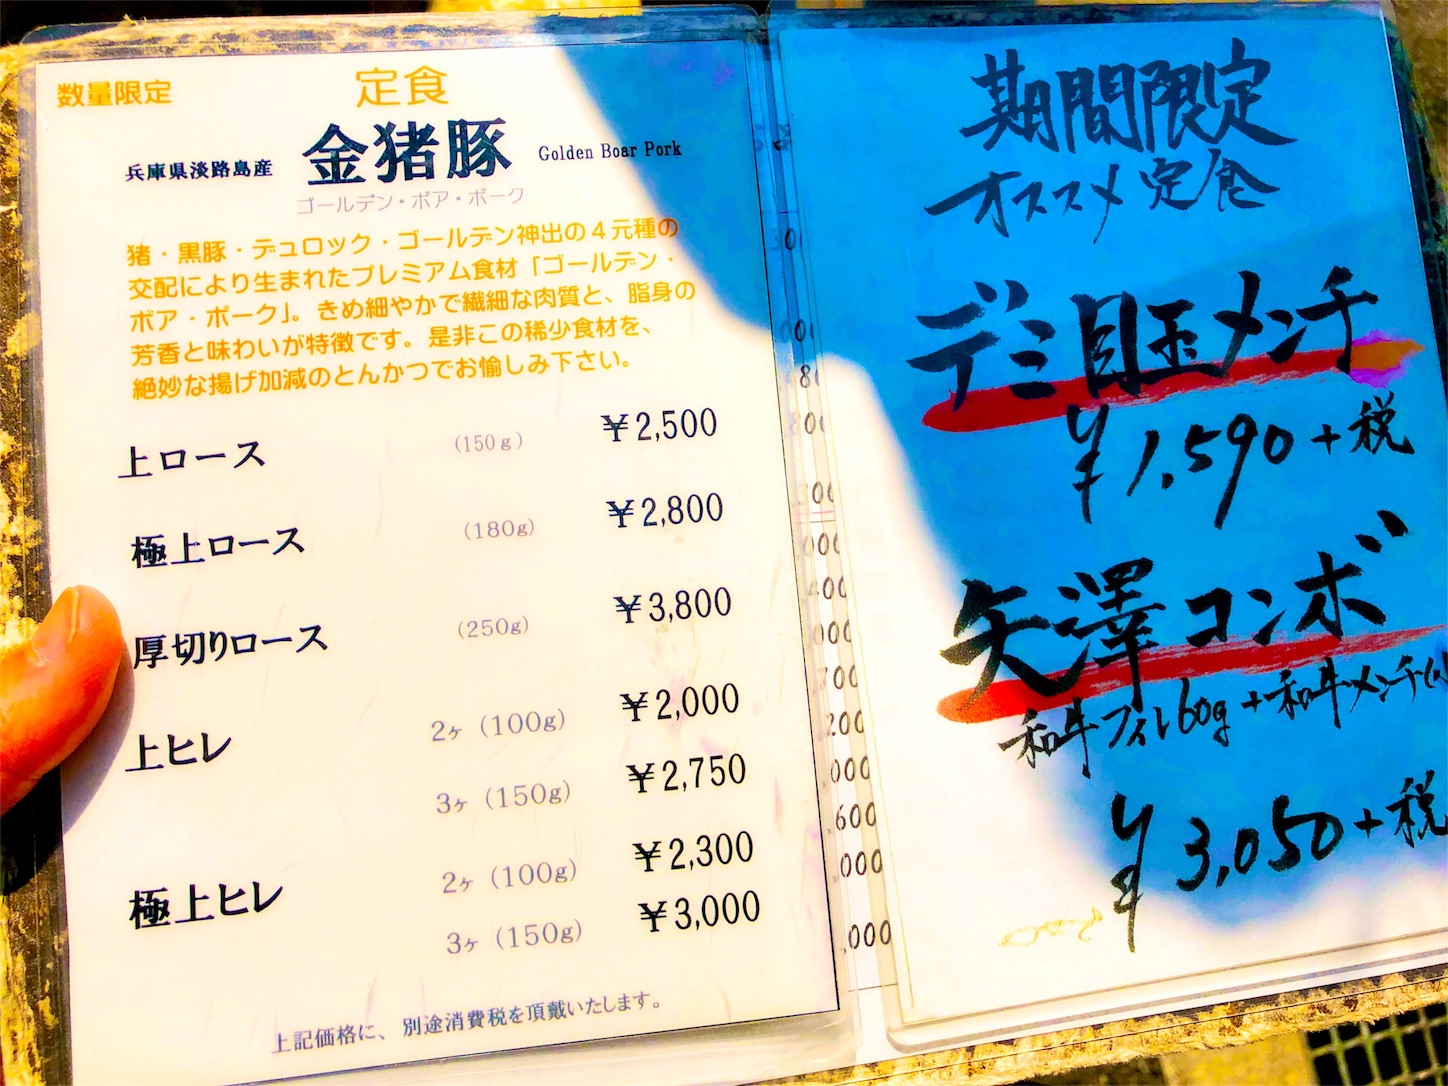 数量限定
定食
兵庫県淡路島産 金猪豚 Golden Boar Pork
ゴールデン・ボア・ポーク
猪・黒豚・デュロック・ゴールデン神出の4元種の
交配により生まれたプレミアム食材「ゴールデン・
ボア・ポーク」。きめ細やかで繊細な肉質と、脂身の
芳香と味わいが特徴です。是非この稀少食材を、
絶妙な揚げ加減のとんかつでお愉しみ下さい。
上ロース (150g) ¥2,500
極上ロース (180g) ¥2,800
厚切りロース (250g) ¥3,800
上ヒレ 2ヶ (100g) ¥2,000
3ヶ (150g) ¥2,750
極上ヒレ 2ヶ (100g) ¥2,300
3ヶ (150g) ¥3,000
上記価格に、別途消費税を頂戴いたします。
期間限定
オススメ定食
デミ目玉メンチ
¥1,590+税
矢澤コンボ
和牛フィレ60g+和牛メンチ
¥3,050+税